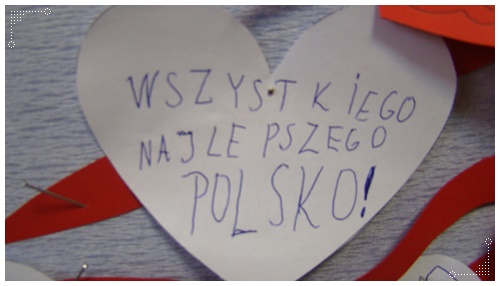 WSZYSTKIEGO
NAJLEPSZEGO
POLSKO!